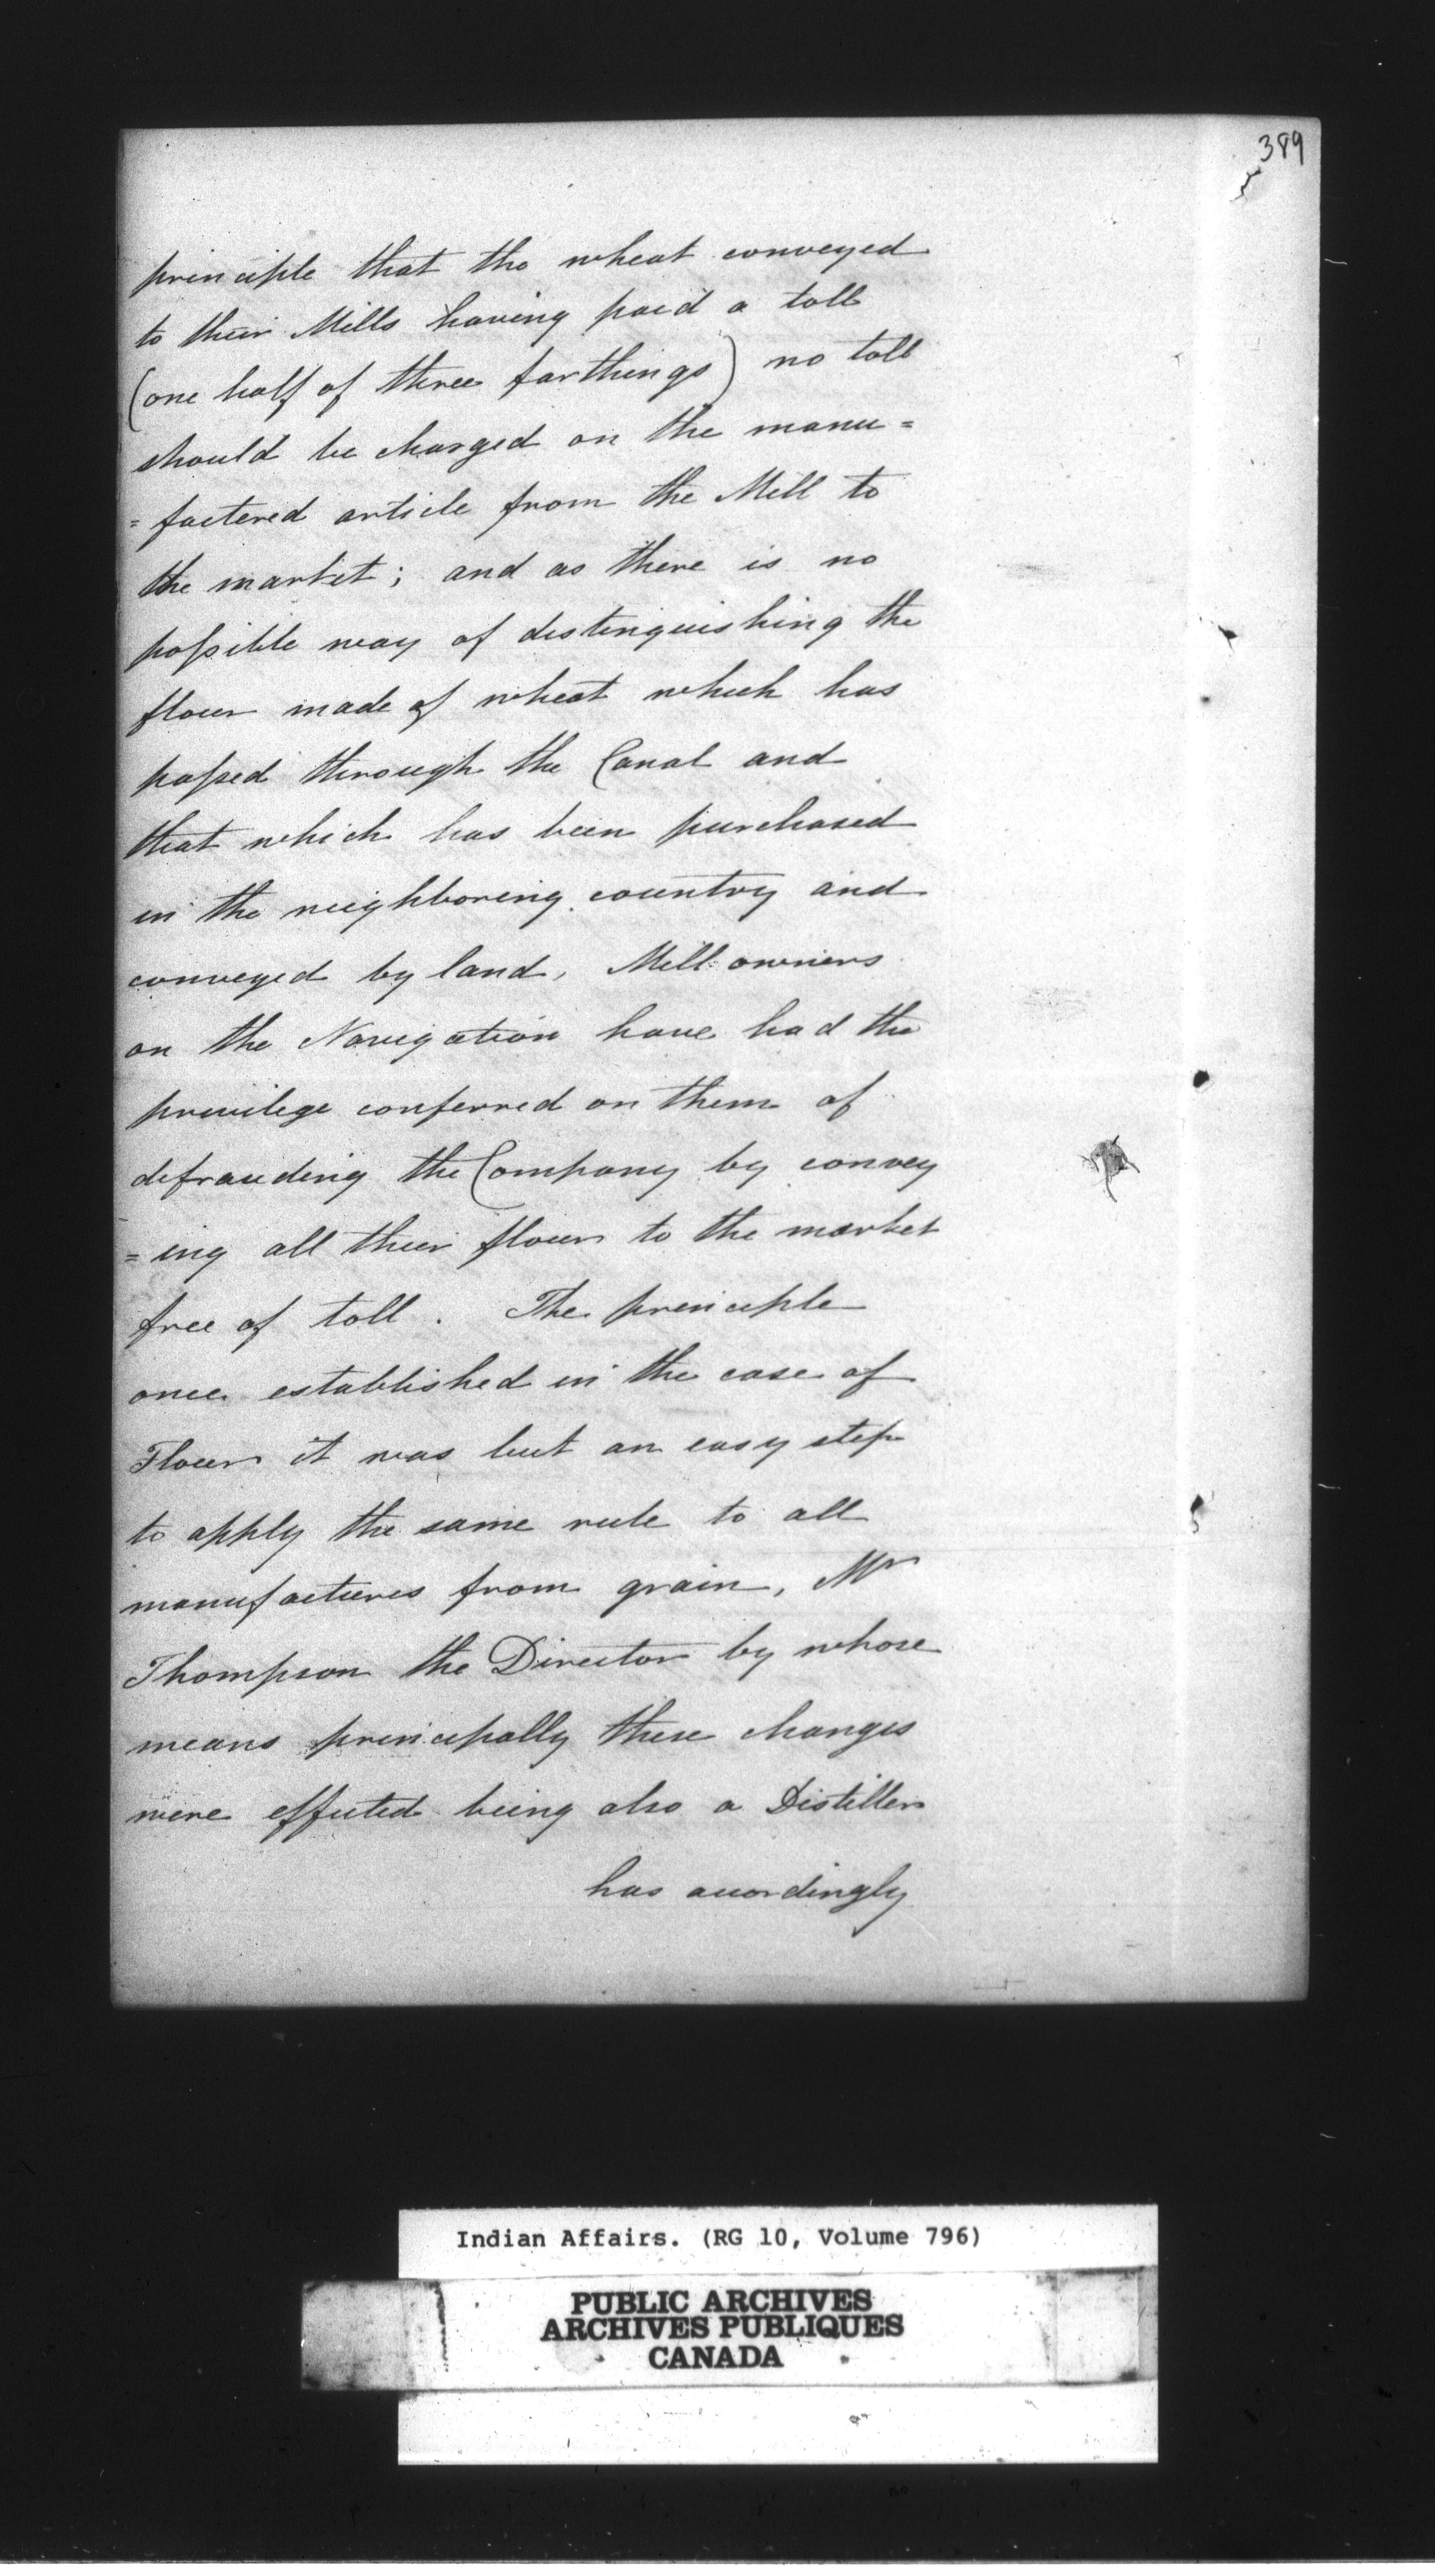 389
principle that the wheat conveyed
to their Mills having paid a toll
(one half of three farthings) no toll
should be charged on the manu=
=factered article from the Mill to
the market; and as there is no
possible way of distinguishing the
flour made of wheat which has
passed through the Canal and
that which has been purchased
in the neighboring country and
conveyed by land, Mill owners
on the Navigation have had the
privilege conferred on them of
defrauding the Company by convey
=ing all their flour to the market
free of toll. The principle
once established in the case of
Flour it was but an easy step
to apply the same rule to all
manufactures from grain, Mr
Thompson the Director by whose
means principally these changes
were effected being also a Distiller
has accordingly
Indian Affairs. (RG 10, Volume 796)
PUBLIC ARCHIVES
ARCHIVES PUBLIQUES
CANADA